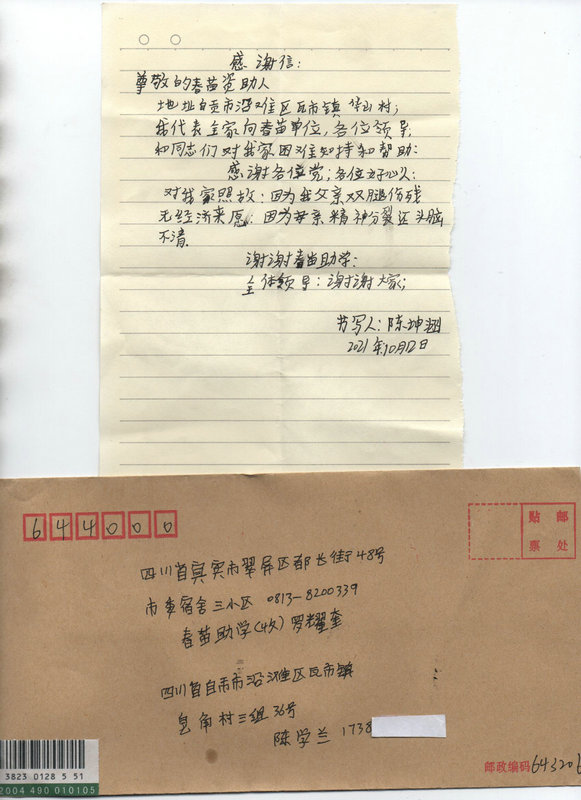 感谢信:
尊敬的春苗资助人
地址自贡市沿滩区瓦市镇 山村;
我代表全家向春苗单位,各位领导,
和同志们对我家困难知持和帮助:
感谢各位党;各位好心人:
对我家照故:因为我父亲双腿伤残
无经济来愿:因为母亲精神分裂还头脑
不清.
谢谢春苗助学:
全体领导:谢谢大家;
书写人:陈坤
2021年10月12日
644000
贴 邮
票 处
四川省宜宾市翠屏区都长街48号
市委宿舍三小区 0813-8200339
春苗助学(收) 罗耀奎
四川省自贡市沿滩区瓦市镇
皂角村三组36号
陈学兰 1738
邮政编码643206
3823 0128 5 51
2004 490 010105